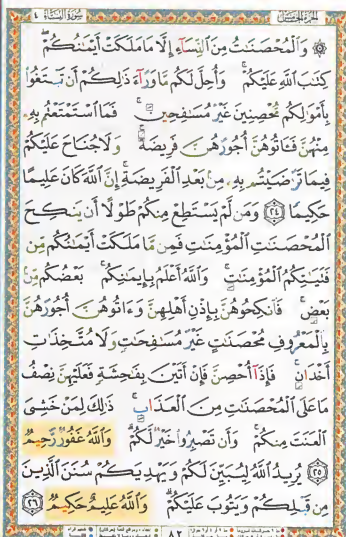 سُورَةُ النِّسَاءِ ٤
الجُزءُ الخَامِسُ
۞ وَالْمُحْصَنَاتُ مِنَ النِّسَاءِ إِلَّا مَا مَلَكَتْ أَيْمَانُكُمْ ۖ
كِتَابَ اللَّهِ عَلَيْكُمْ ۚ وَأُحِلَّ لَكُم مَّا وَرَاءَ ذَٰلِكُمْ أَن تَبْتَغُوا
بِأَمْوَالِكُم مُّحْصِنِينَ غَيْرَ مُسَافِحِينَ ۚ فَمَا اسْتَمْتَعْتُم بِهِ
مِنْهُنَّ فَآتُوهُنَّ أُجُورَهُنَّ فَرِيضَةً ۚ وَلَا جُنَاحَ عَلَيْكُمْ
فِيمَا تَرَاضَيْتُم بِهِ مِن بَعْدِ الْفَرِيضَةِ ۚ إِنَّ اللَّهَ كَانَ عَلِيمًا
حَكِيمًا ٢٤ وَمَن لَّمْ يَسْتَطِعْ مِنكُمْ طَوْلًا أَن يَنكِحَ
الْمُحْصَنَاتِ الْمُؤْمِنَاتِ فَمِن مَّا مَلَكَتْ أَيْمَانُكُم مِّن
فَتَيَاتِكُمُ الْمُؤْمِنَاتِ ۚ وَاللَّهُ أَعْلَمُ بِإِيمَانِكُم ۚ بَعْضُكُم مِّن
بَعْضٍ ۚ فَانكِحُوهُنَّ بِإِذْنِ أَهْلِهِنَّ وَآتُوهُنَّ أُجُورَهُنَّ
بِالْمَعْرُوفِ مُحْصَنَاتٍ غَيْرَ مُسَافِحَاتٍ وَلَا مُتَّخِذَاتِ
أَخْدَانٍ ۚ فَإِذَا أُحْصِنَّ فَإِنْ أَتَيْنَ بِفَاحِشَةٍ فَعَلَيْهِنَّ نِصْفُ
مَا عَلَى الْمُحْصَنَاتِ مِنَ الْعَذَابِ ۚ ذَٰلِكَ لِمَنْ خَشِيَ
الْعَنَتَ مِنكُمْ ۚ وَأَن تَصْبِرُوا خَيْرٌ لَّكُمْ ۗ وَاللَّهُ غَفُورٌ رَّحِيمٌ
٢٥ يُرِيدُ اللَّهُ لِيُبَيِّنَ لَكُمْ وَيَهْدِيَكُمْ سُنَنَ الَّذِينَ
مِن قَبْلِكُمْ وَيَتُوبَ عَلَيْكُمْ ۗ وَاللَّهُ عَلِيمٌ حَكِيمٌ ٢٦
٨٢